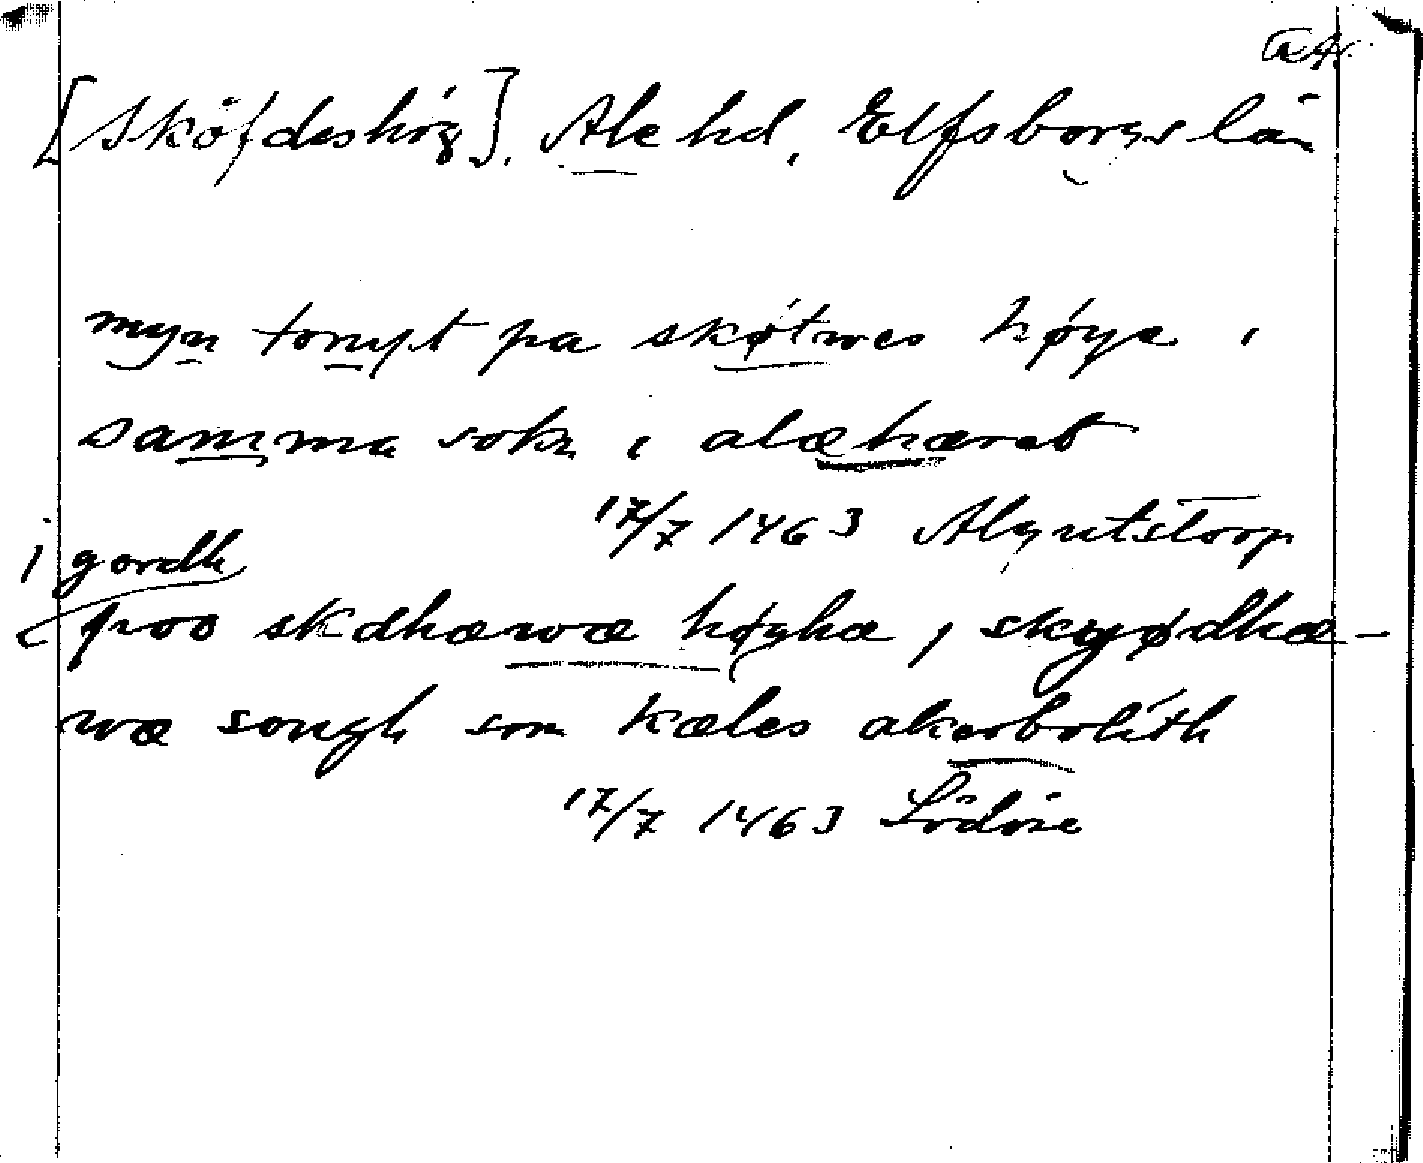 [Sköfdeshög]. Ale hd, Elfsborgs län
myn tompt pa skøtwes høye i
samma sokn i alæhæret
17/7 1463 Algutstorp
1 gordh
poo skdhæwæ høgha i skyødhæ-
wæ songh som kæles akerbolith
17/7 1463 Lödöse